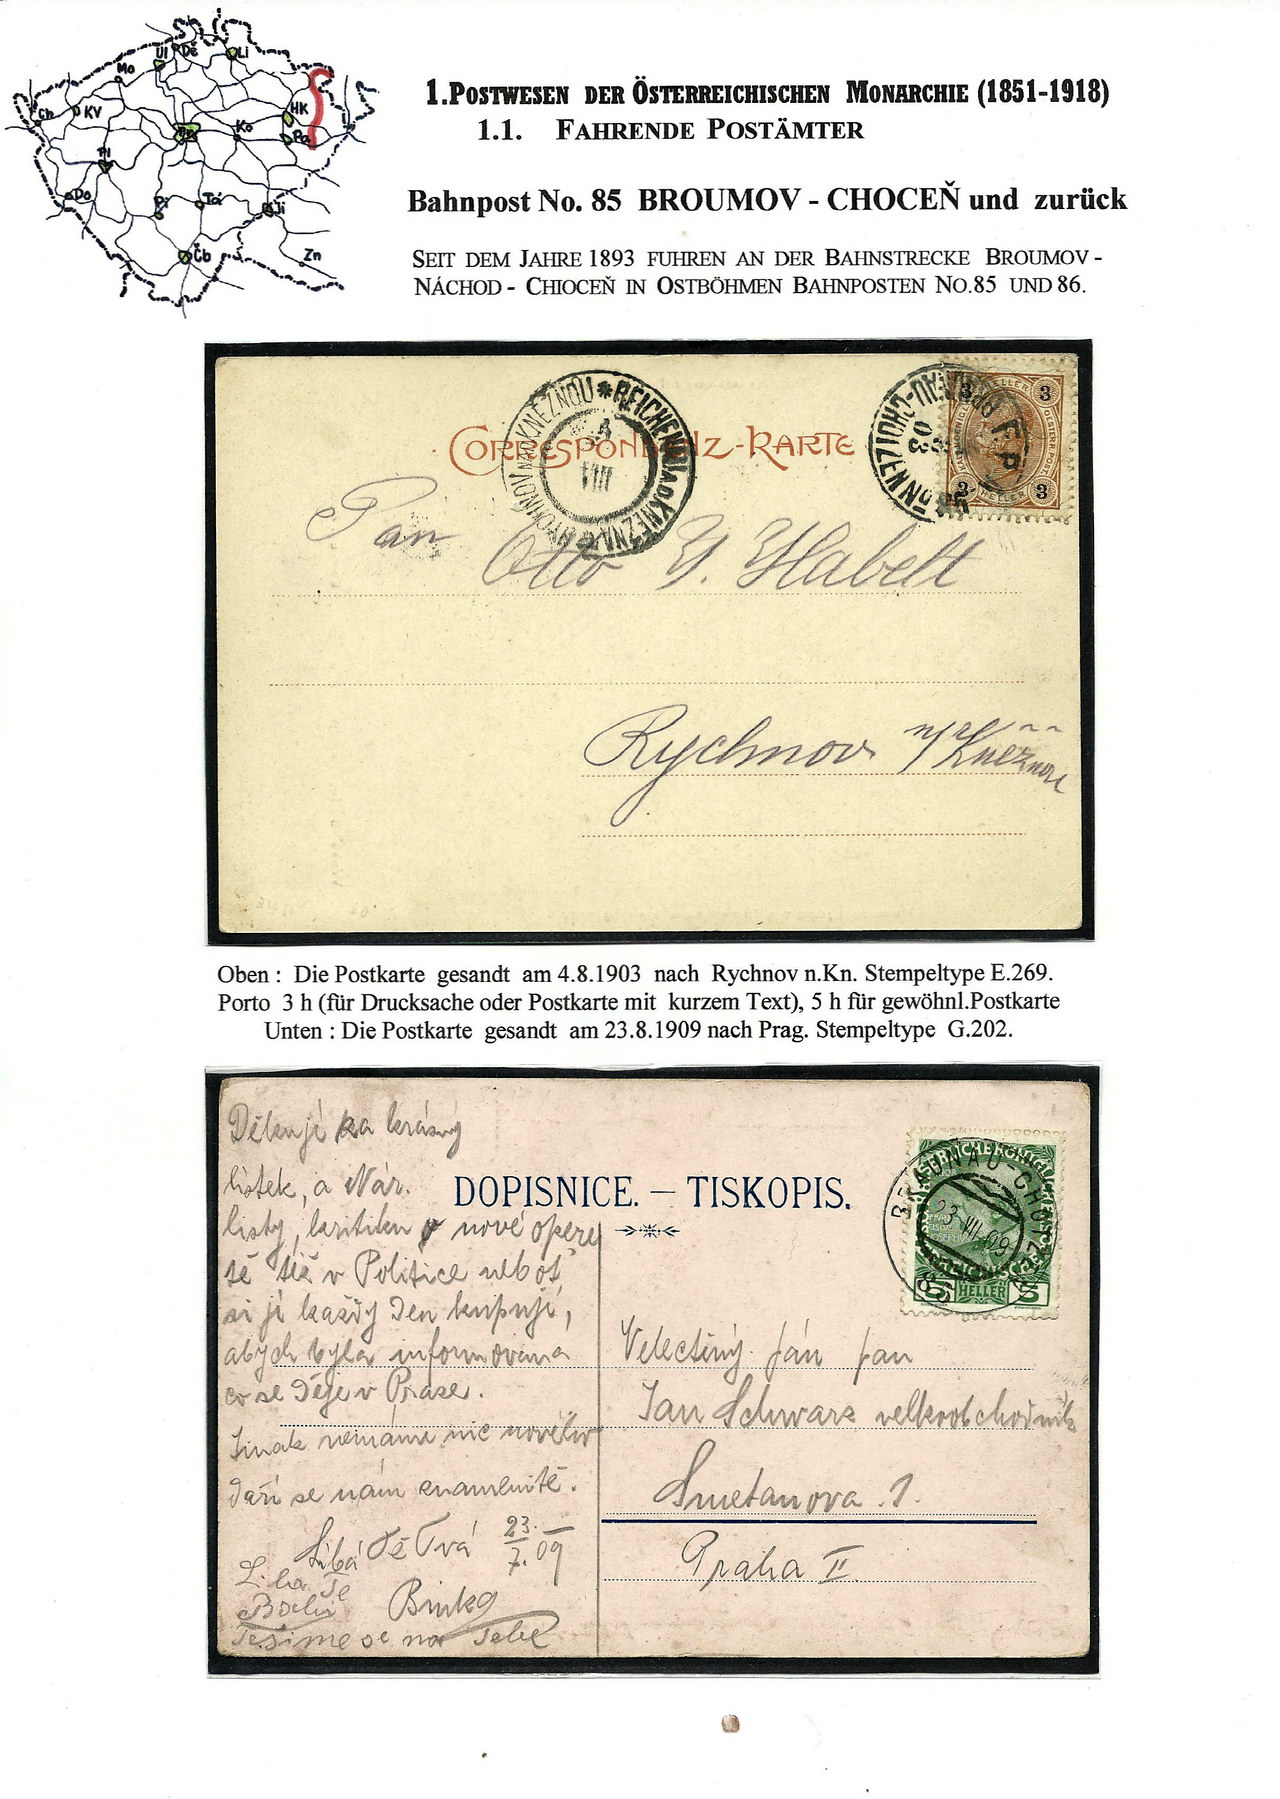 Ul
Dě
Li
Mo
Ch
KV
HK
Ko
Pa
Pl
Do
Pi
Tá
Ji
Čb
Zn
1.POSTWESEN DER ÖSTERREICHISCHEN MONARCHIE (1851-1918)
1.1. FAHRENDE POSTÄMTER
Bahnpost No. 85 BROUMOV - CHOCEŇ und zurück
SEIT DEM JAHRE 1893 FUHREN AN DER BAHNSTRECKE BROUMOV -
NÁCHOD - CHIOCEŇ IN OSTBÖHMEN BAHNPOSTEN NO.85 UND 86.
CORRESPONDENZ-KARTE
RYCHNOV NAD KNĚŽNOU * REICHENAU A. D. KNĚŽNA
VIII
3 HELLER 3
3 HELLER 3
F. P.
03
Pan
Otto Y. Habelt
Rychnov n/Kněžnou
Oben : Die Postkarte gesandt am 4.8.1903 nach Rychnov n.Kn. Stempeltype E.269.
Porto 3 h (für Drucksache oder Postkarte mit kurzem Text), 5 h für gewöhnl.Postkarte
Unten : Die Postkarte gesandt am 23.8.1909 nach Prag. Stempeltype G.202.
DOPISNICE. — TISKOPIS.
BRAUNAU-CHOTZEN
23 VII 09
5 HELLER 5
Děkuji za krásný
lístek, a Nár.
listy, kritiku o nové opeře
tě též v Politice neboť
si ji každý den kupuji,
abych byla informována
co se děje v Praze.
Jinak nemáme nic nového
daří se nám znamenitě.
Líbá Tě Tvá 23./7. 09
Binka
Těšíme se na Tebe
Velectěný pán pan
Jan Schwarz velkoobchodník
Smetanova 1.
Praha II.